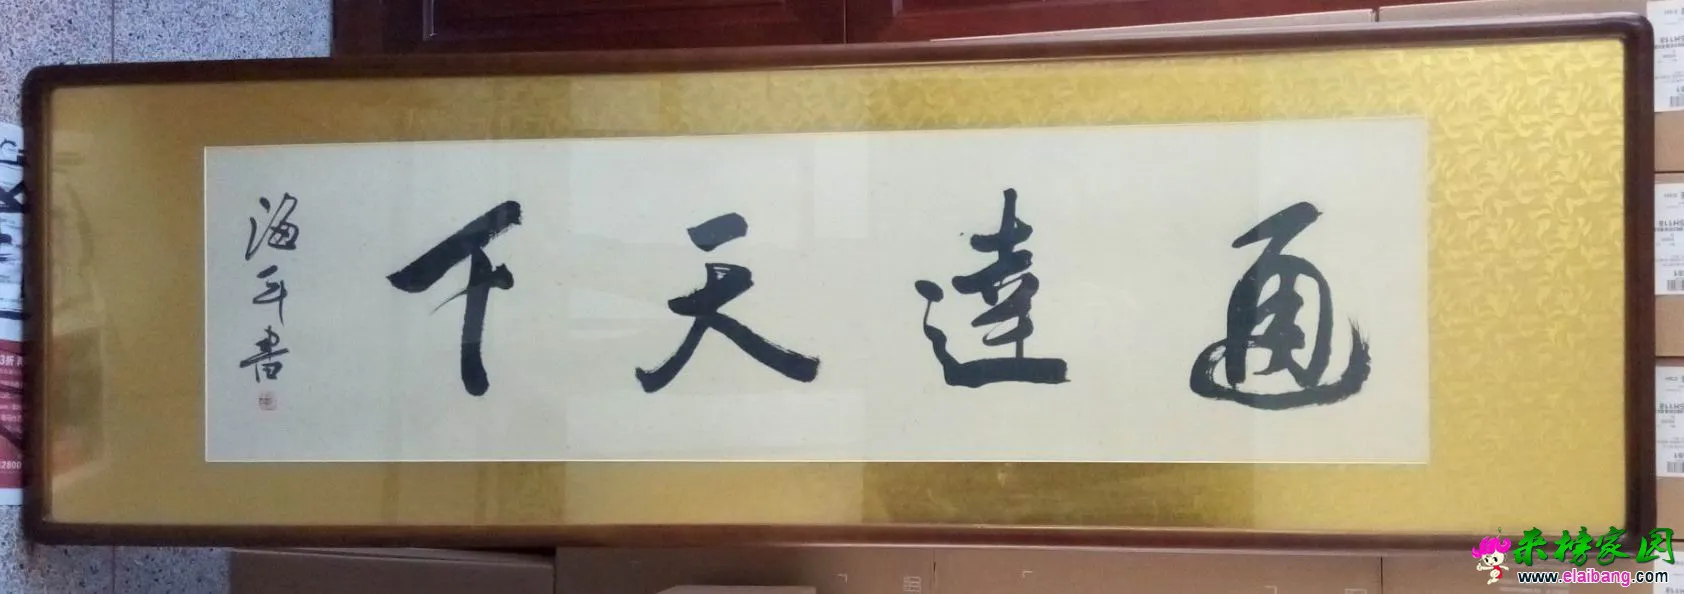 通達天下
海平書
来榜家园
www.elaibang.com
3折
2800